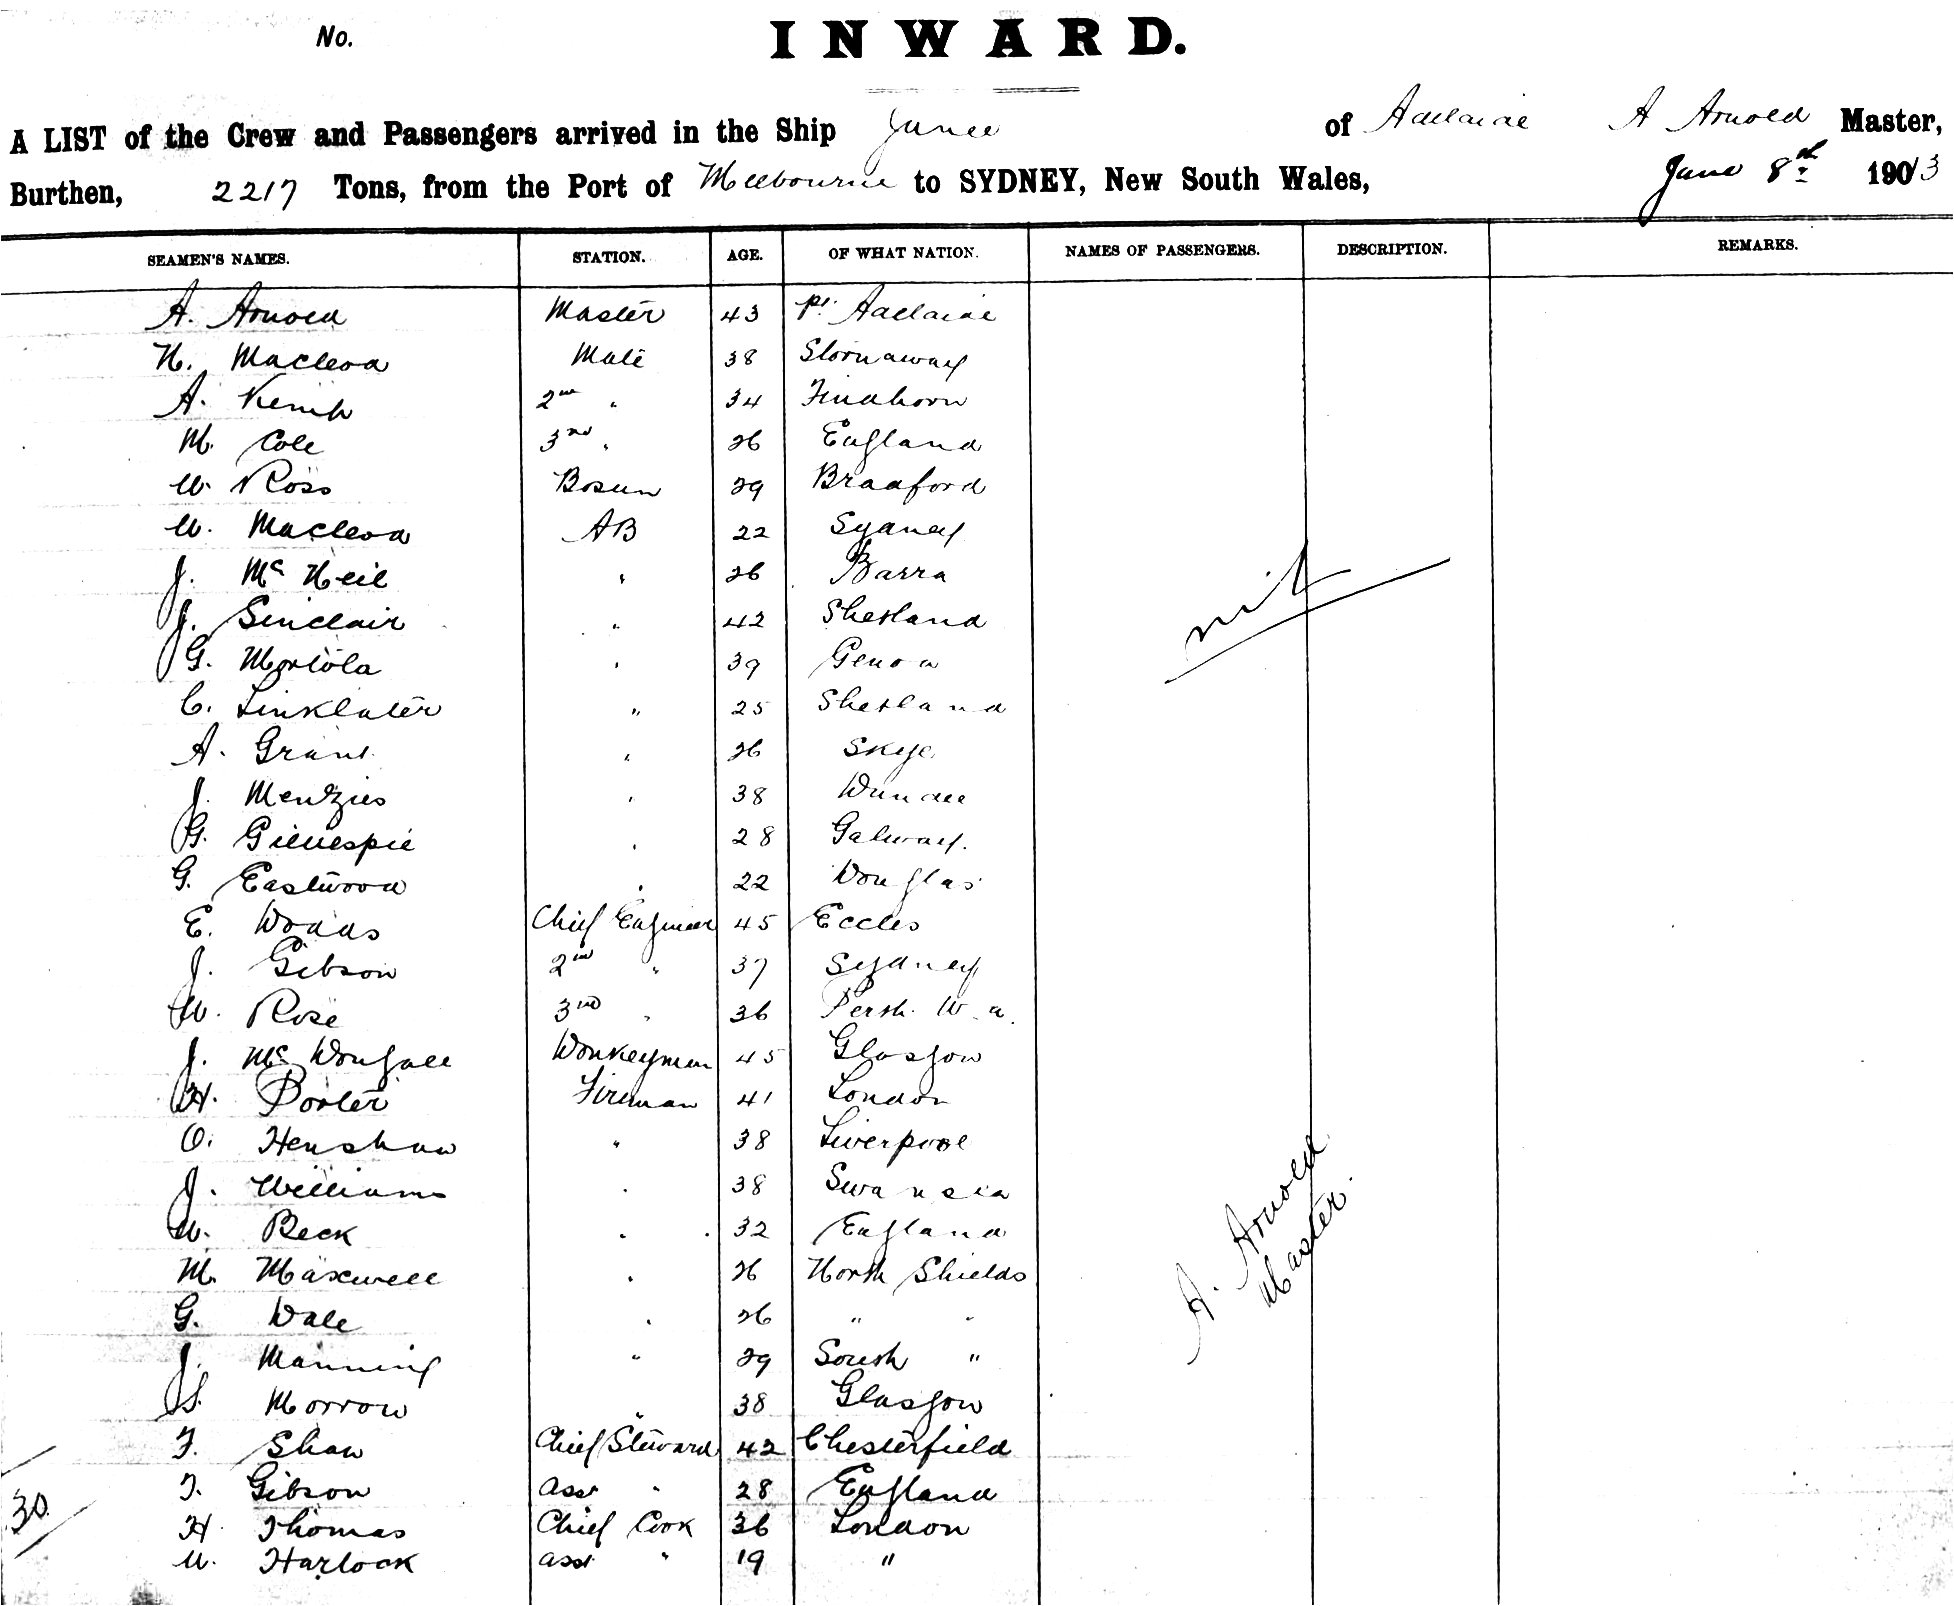 No. INWARD.
A LIST of the Crew and Passengers arrived in the Ship Junee of Adelaide A Arnold Master,
Burthen, 2217 Tons, from the Port of Melbourne to SYDNEY, New South Wales, June 8th 1903
SEAMEN'S NAMES. STATION. AGE. OF WHAT NATION. NAMES OF PASSENGERS. DESCRIPTION. REMARKS.
A. Arnold Master 43 Pt Adelaide
N. Macleod Mate 38 Stornaway
A. Kemp 2nd " 34 Findhorn
M. Cole 3rd " 26 England
W. Ross Bosun 29 Bradford
W. Macleod AB 22 Sydney
J. McNeil " 26 Barra
J. Sinclair " 42 Shetland
G. Mortola " 39 Genoa
C. Linklater " 25 Shetland
A. Grant " 26 Skye
J. Menzies " 38 Dundee
G. Gillespie " 28 Galway.
G. Eastwood " 22 Douglas
E. Dodds Chief Engineer 45 Eccles
J. Gibson 2nd " 37 Sydney
W. Rose 3rd " 36 Perth. W.A.
J. McDougall Donkeyman 45 Glasgow
H. Porter Fireman 41 London
O. Henshaw " 38 Liverpool
J. Williams " 38 Swansea
W. Beck " 32 England
M. Maxwell " 26 North Shields
G. Dale " 26 " "
J. Manning " 29 South "
S. Morrow " 38 Glasgow
F. Shaw Chief Steward 42 Chesterfield
F. Gibson Asst " 28 England
H. Thomas Chief Cook 36 London
W. Harlock Asst " 19 "
nil
A. Arnold
Master.
30